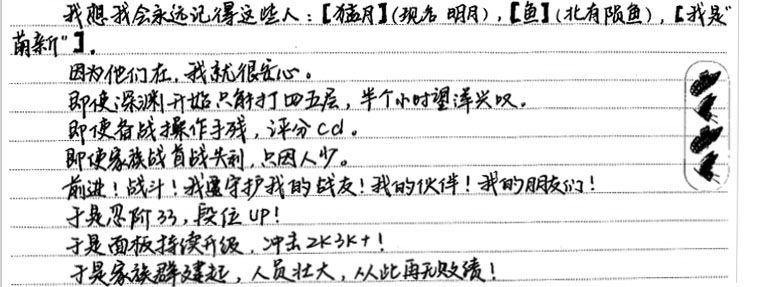 我想我会永远记得这些人：【猫月】（现名 明月），【鱼】（北有陨鱼），【我是"
萌新"】.
因为他们在，我就很安心。
即使深渊开始只能打四五层，半个小时望洋兴叹。
即使备战操作手残，评分cd。
即使家族战首战失利，只因人少。
前进！战斗！我要守护我的战友！我的伙伴！我的朋友们！
于是忍阶33，段位UP！
于是面板持续升级，冲击2K3K+！
于是家族群建起，人员壮大，从此再无败绩！